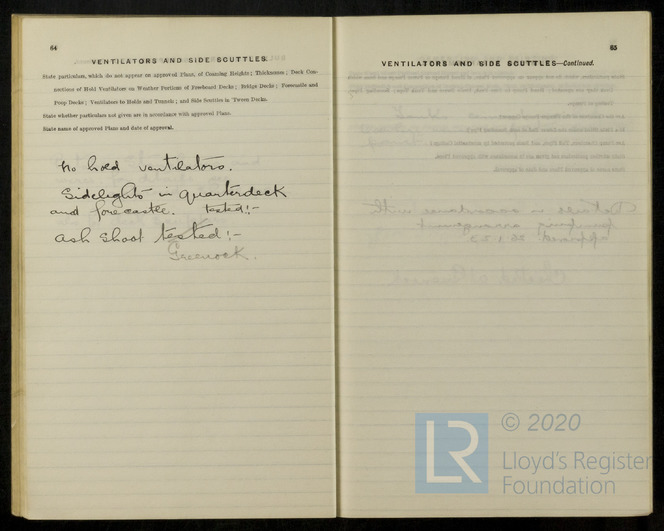 64
VENTILATORS AND SIDE SCUTTLES.
State particulars, which do not appear on approved Plans, of Coaming Heights; Thicknesses; Deck Con-
nections of Hold Ventilators on Weather Portions of Freeboard Decks; Bridge Decks; Forecastle and
Poop Decks; Ventilators to Holds and Tunnels; and Side Scuttles in 'Tween Decks.
State whether particulars not given are in accordance with approved Plans.
State name of approved Plan and date of approval.
No hold ventilators.
Sidelights in quarterdeck
and forecastle. tested:-
Ash shoot tested:-
Greenock.
65
VENTILATORS AND SIDE SCUTTLES—Continued.
LR
© 2020
Lloyd's Register
Foundation